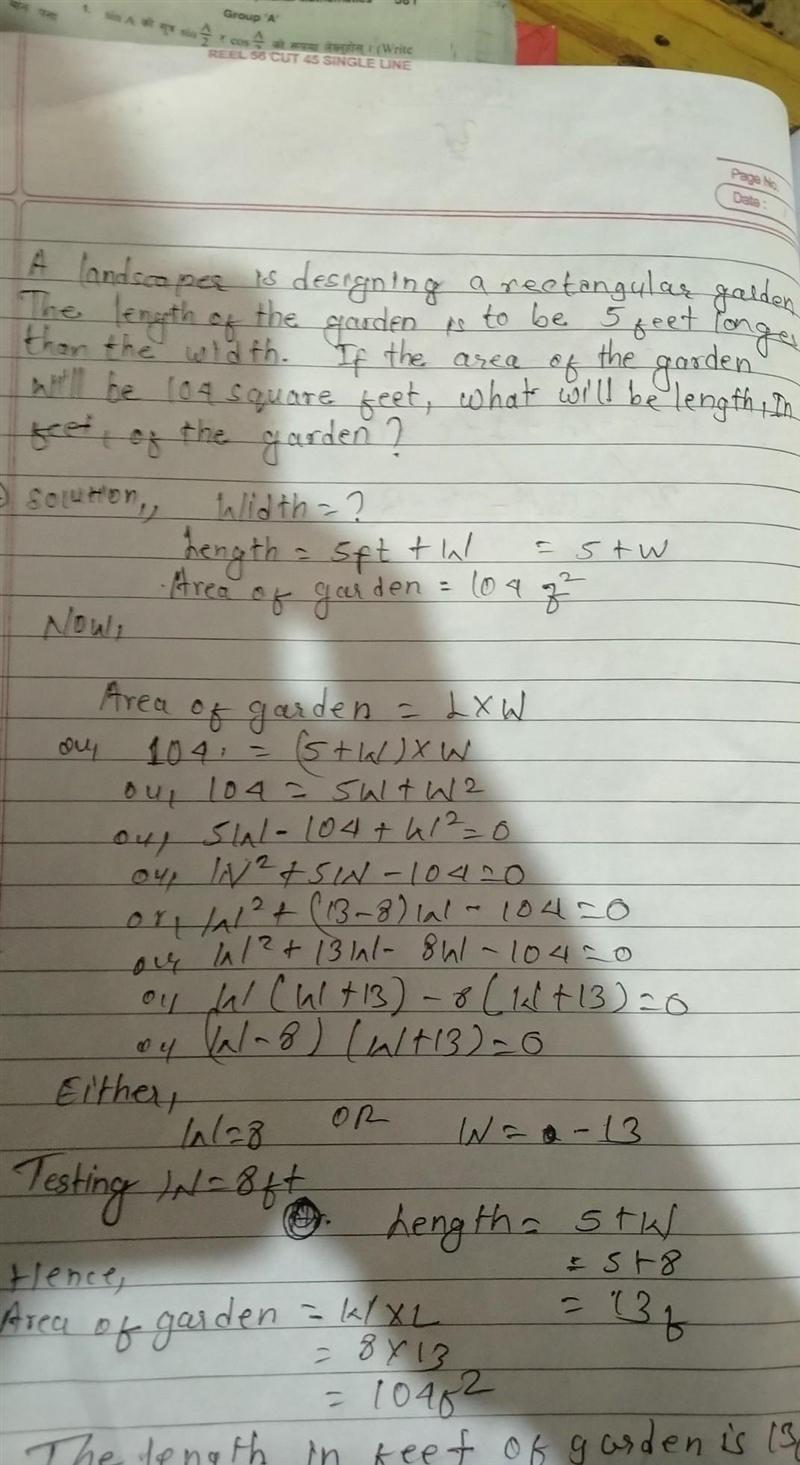 Group 'A'
1. sin A को sin A/2 र cos को रूपमा लेख्नुहोस् । (Write
REEL 56 CUT 45 SINGLE LINE
Page No.
Date :
A landscaper is designing a rectangular garden
The length of the garden is to be 5 feet longer
than the width. If the area of the garden
will be 104 square feet, what will be length, In
feet, of the garden?
Solution,, Width = ?
Length = 5ft + W = 5 + W
Area of garden = 104 f²
Now,
Area of garden = L × W
or, 104 = (5+W) × W
or, 104 = 5W + W²
or, 5W - 104 + W² = 0
or, W² + 5W - 104 = 0
or, W² + (13-8)W - 104 = 0
or, W² + 13W - 8W - 104 = 0
or, W (W + 13) - 8 (W + 13) = 0
or, (W - 8) (W + 13) = 0
Either,
W = 8 OR W = - 13
Testing W = 8ft
Length = 5 + W
= 5 + 8
= 13 f
Hence,
Area of garden = W × L
= 8 × 13
= 104 f²
The length in feet of garden is 13